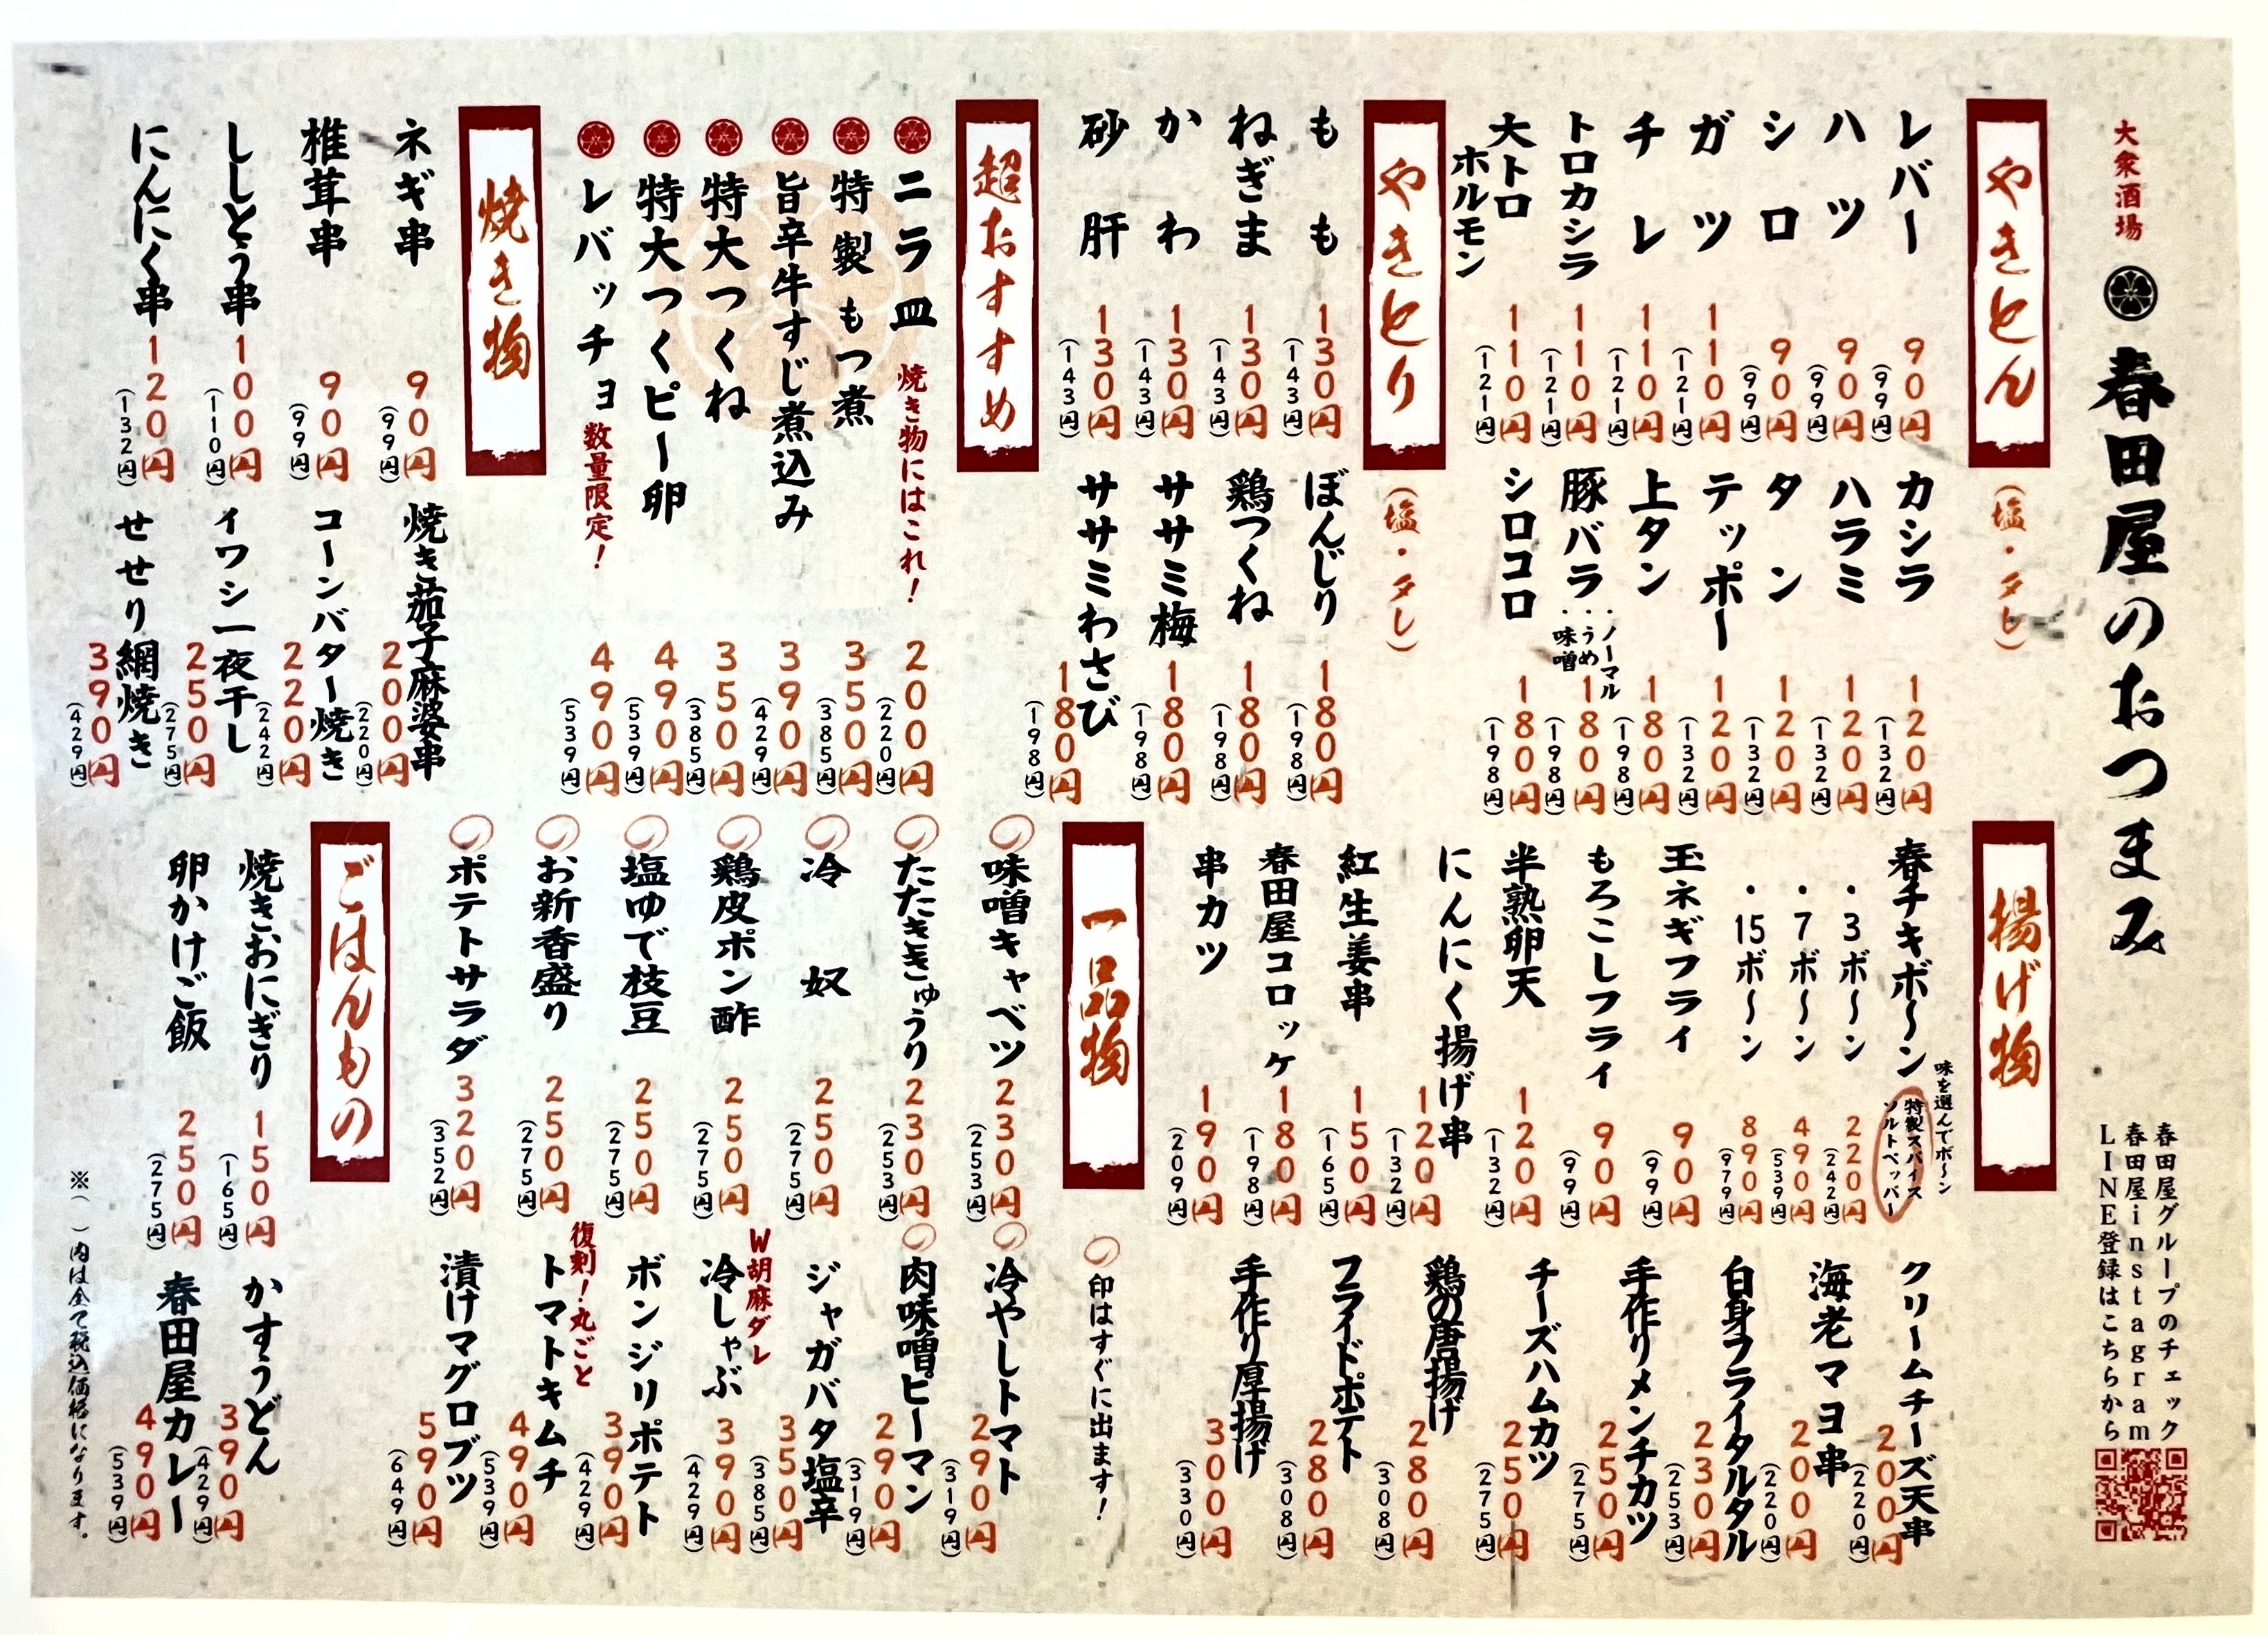 大衆酒場
春田屋のおつまみ
春田屋グループのチェック
春田屋instagram
LINE登録はこちらから
やきとん
(塩・タレ)
レバー 90円 (99円)
ハツ 90円 (99円)
シロ 90円 (99円)
ガツ 110円 (121円)
チレ 110円 (121円)
トロカシラ 110円 (121円)
大トロホルモン 110円 (121円)
カシラ 120円 (132円)
ハラミ 120円 (132円)
タン 120円 (132円)
テッポー 120円 (132円)
上タン 180円 (198円)
豚バラ ・ノーマル ・うめ 味噌 180円 (198円)
シロコロ 180円 (198円)
やきとり
(塩・タレ)
もも 130円 (143円)
ねぎま 130円 (143円)
かわ 130円 (143円)
砂肝 130円 (143円)
ぼんじり 180円 (198円)
鶏つくね 180円 (198円)
ササミ梅 180円 (198円)
ササミわさび 180円 (198円)
超おすすめ
ニラ皿 焼き物にはこれ! 200円 (220円)
特製もつ煮 350円 (385円)
旨辛牛すじ煮込み 390円 (429円)
特大つくね 350円 (385円)
特大つくピー卵 490円 (539円)
レバッチョ 数量限定! 490円 (539円)
焼き物
ネギ串 90円 (99円)
椎茸串 90円 (99円)
ししとう串 100円 (110円)
にんにく串 120円 (132円)
焼き茄子麻婆串 200円 (220円)
コーンバター焼き 220円 (242円)
イワシ一夜干し 250円 (275円)
せせり網焼き 390円 (429円)
揚げ物
春チキボ〜ン
味を選んでボ〜ン
特製スパイス
ソルトペッパー
・3ボ〜ン 220円 (242円)
・7ボ〜ン 490円 (539円)
・15ボ〜ン 890円 (979円)
玉ネギフライ 90円 (99円)
もろこしフライ 90円 (99円)
半熟卵天 120円 (132円)
にんにく揚げ串 120円 (132円)
紅生姜串 150円 (165円)
春田屋コロッケ 180円 (198円)
串カツ 190円 (209円)
クリームチーズ天串 200円 (220円)
海老マヨ串 200円 (220円)
白身フライタルタル 230円 (253円)
手作りメンチカツ 250円 (275円)
チーズハムカツ 250円 (275円)
鶏の唐揚げ 280円 (308円)
フライドポテト 280円 (308円)
手作り厚揚げ 300円 (330円)
一品物
印はすぐに出ます!
味噌キャベツ 230円 (253円)
たたききゅうり 230円 (253円)
冷奴 250円 (275円)
鶏皮ポン酢 250円 (275円)
塩ゆで枝豆 250円 (275円)
お新香盛り 250円 (275円)
ポテトサラダ 320円 (352円)
冷やしトマト 290円 (319円)
肉味噌ピーマン 290円 (319円)
ジャガバタ塩辛 350円 (385円)
W胡麻ダレ
冷しゃぶ 390円 (429円)
ボンジリポテト 390円 (429円)
復刻!丸ごと
トマトキムチ 490円 (539円)
漬けマグロブツ 590円 (649円)
ごはんもの
焼きおにぎり 150円 (165円)
卵かけご飯 250円 (275円)
かすうどん 390円 (429円)
春田屋カレー 490円 (539円)
※( )内は全て税込価格になります。